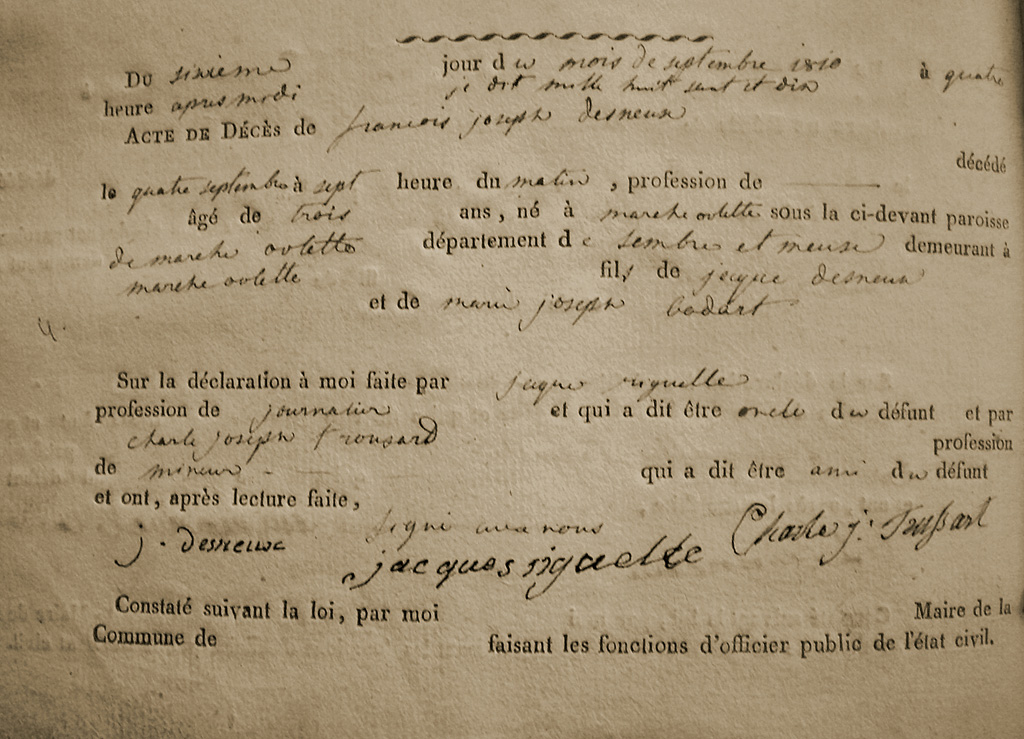 Du sixieme jour du mois de septembre 1810 à quatre
heure apres midi je dit mille huit sent et dix
ACTE DE DÉCÈS de francois joseph desneux
décédé
le quatre septembre à sept heure du matin, profession de
âgé de trois ans, né à marche ovlette sous la ci-devant paroisse
de marche ovlette département de sembre et meuse demeurant à
marche ovlette fils de jacque desneux
et de marie joseph bodart
4.
Sur la déclaration à moi faite par jaque riguelle
profession de journalier et qui a dit être oncle du défunt et par
charle joseph trousard profession
de mineur qui a dit être ami du défunt
et ont, après lecture faite,
signé avec nous
j. desneux jacques riguelle Charle j.
Constaté suivant la loi, par moi Maire de la
Commune de faisant les fonctions d'officier public de l'état civil.